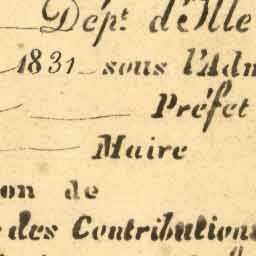 Dépt. d'Ille
1831 sous l'Adm
Préfet
Maire
on de
des Contributions